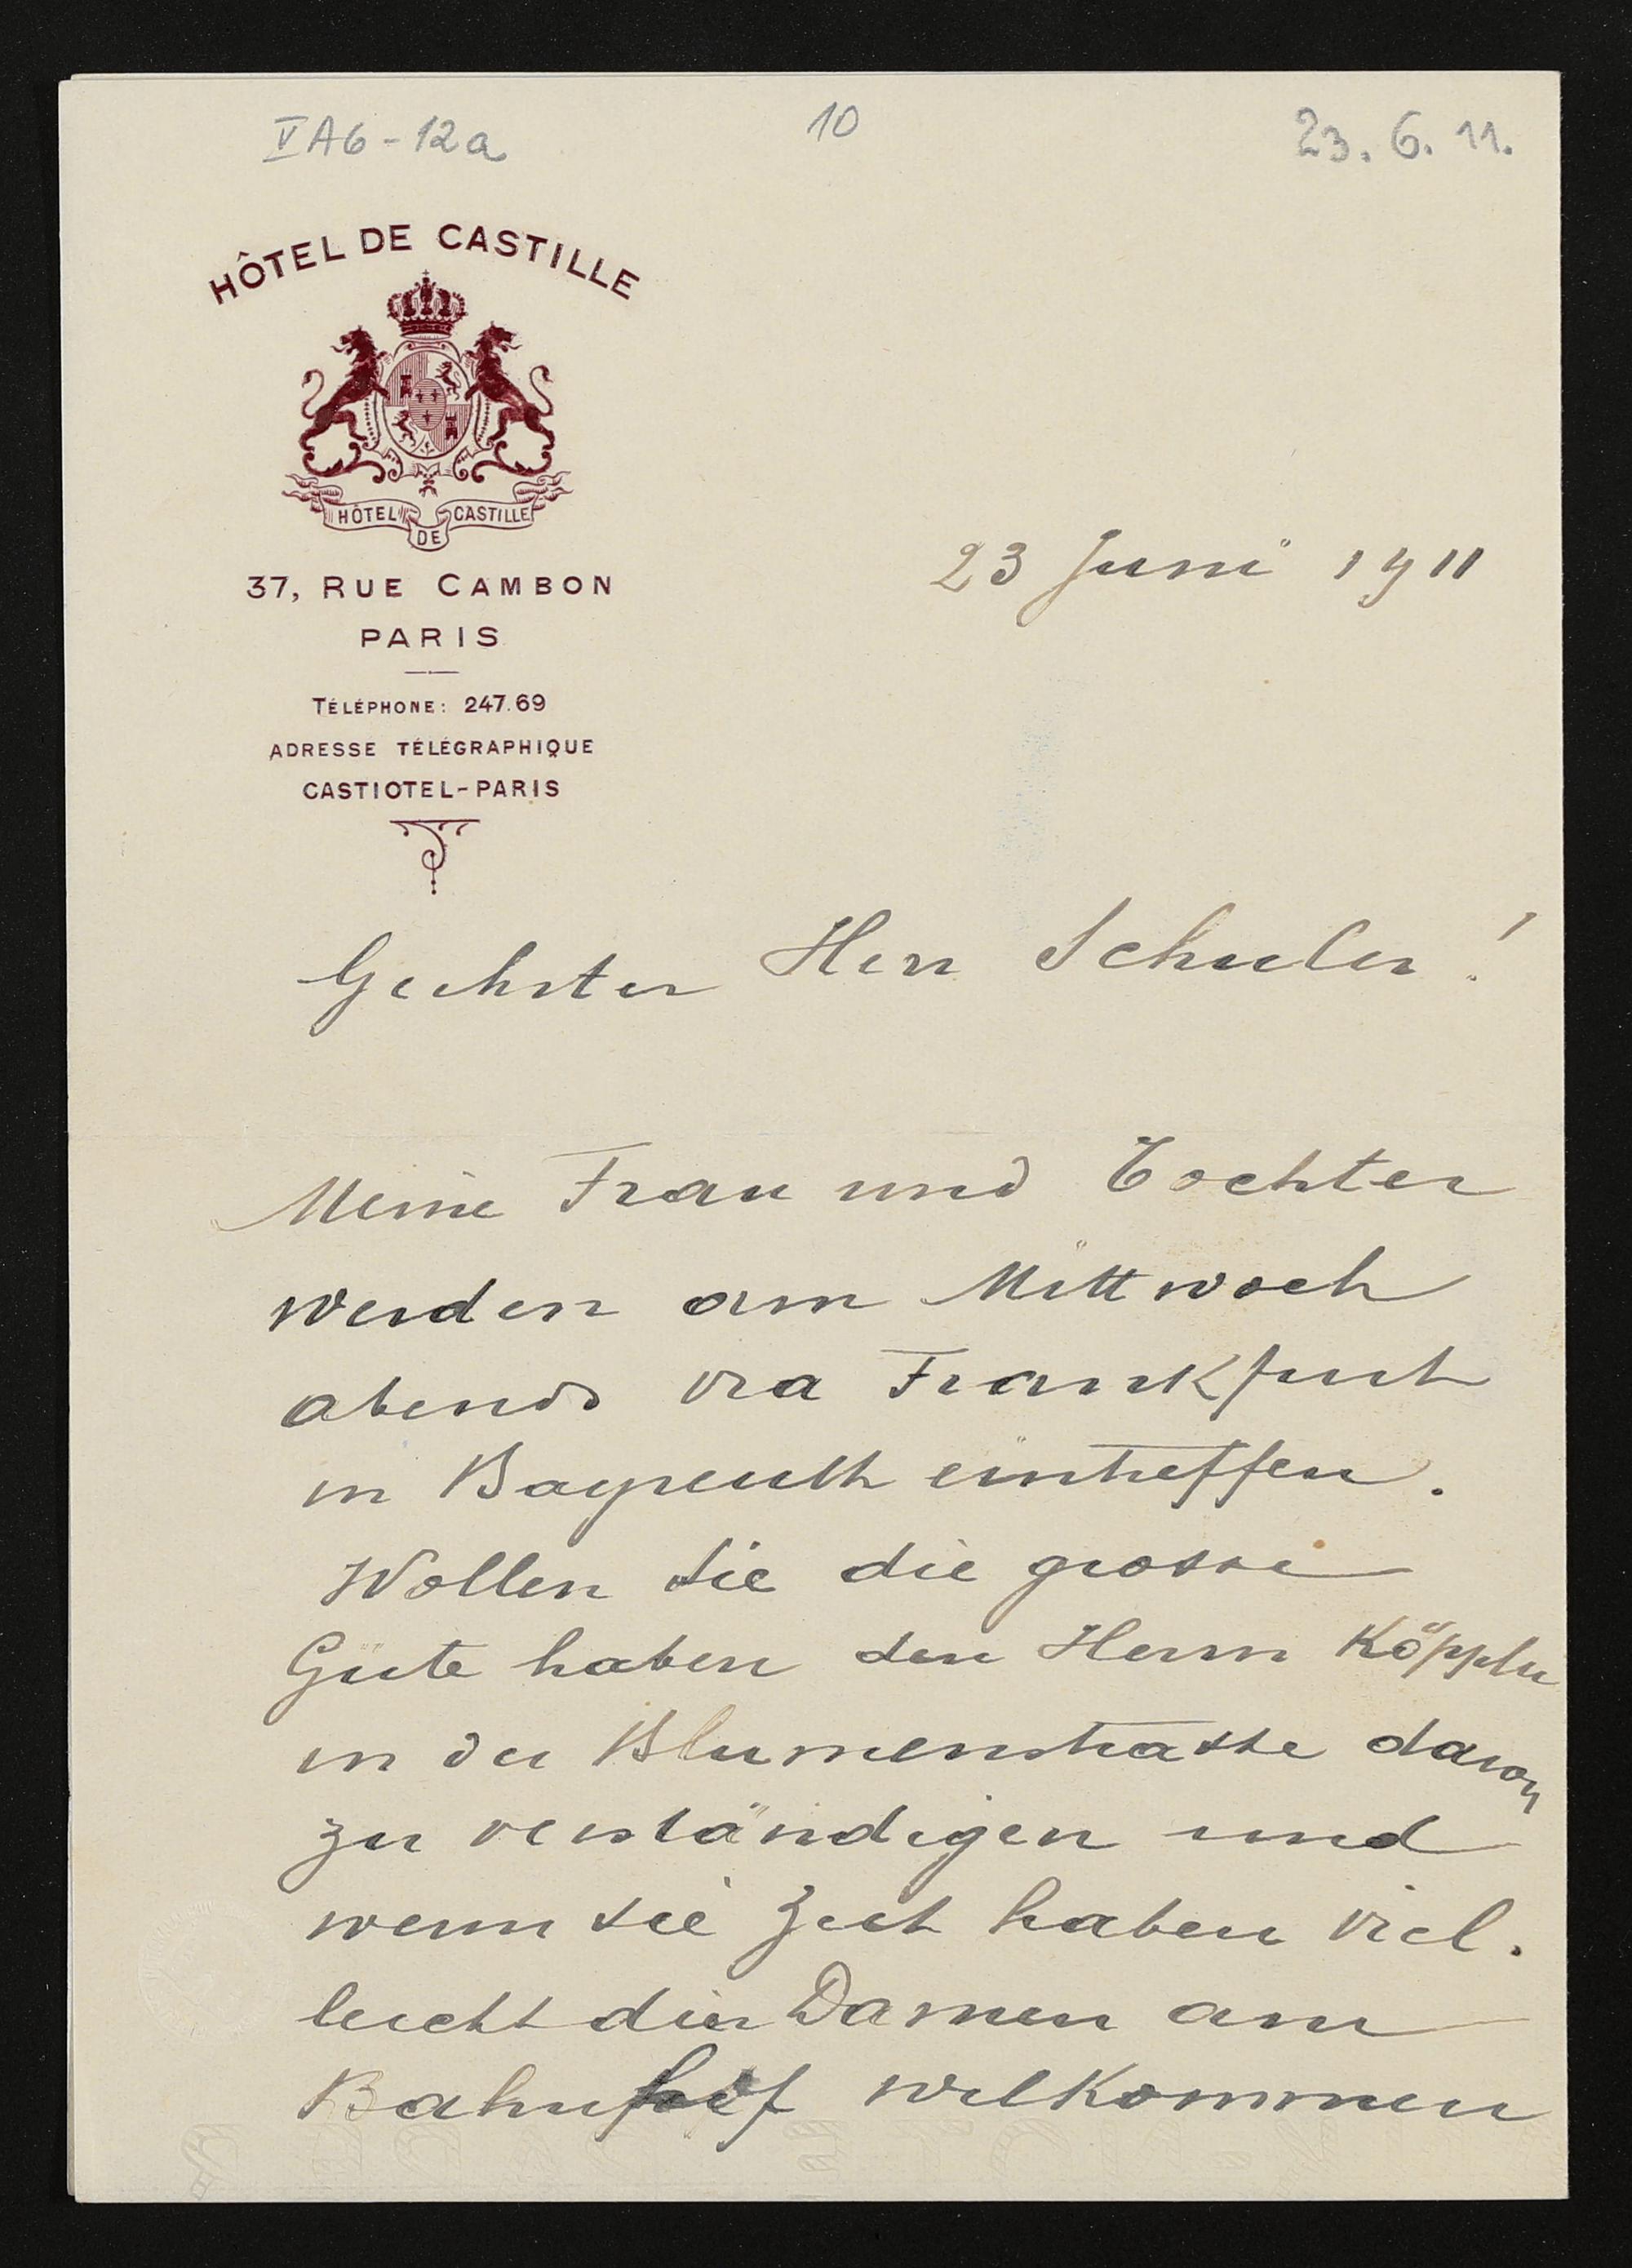 V A6-12a 10 23. 6. 11.
HÔTEL DE CASTILLE
HÔTEL DE CASTILLE
37, RUE CAMBON
PARIS
TÉLÉPHONE: 247.69
ADRESSE TÉLÉGRAPHIQUE
CASTIOTEL-PARIS
23 Juni 1911
Geehrter Herr Schuler!
Meine Frau und Tochter
werden am Mittwoch
abends via Frankfurt
in Bayreuth eintreffen.
Wollen Sie die grosse
Güte haben den Herrn
in der Blumenstrasse davon
zu verständigen und
wenn sie Zeit haben viel.
leicht die Damen am
Bahnhof wilkommen